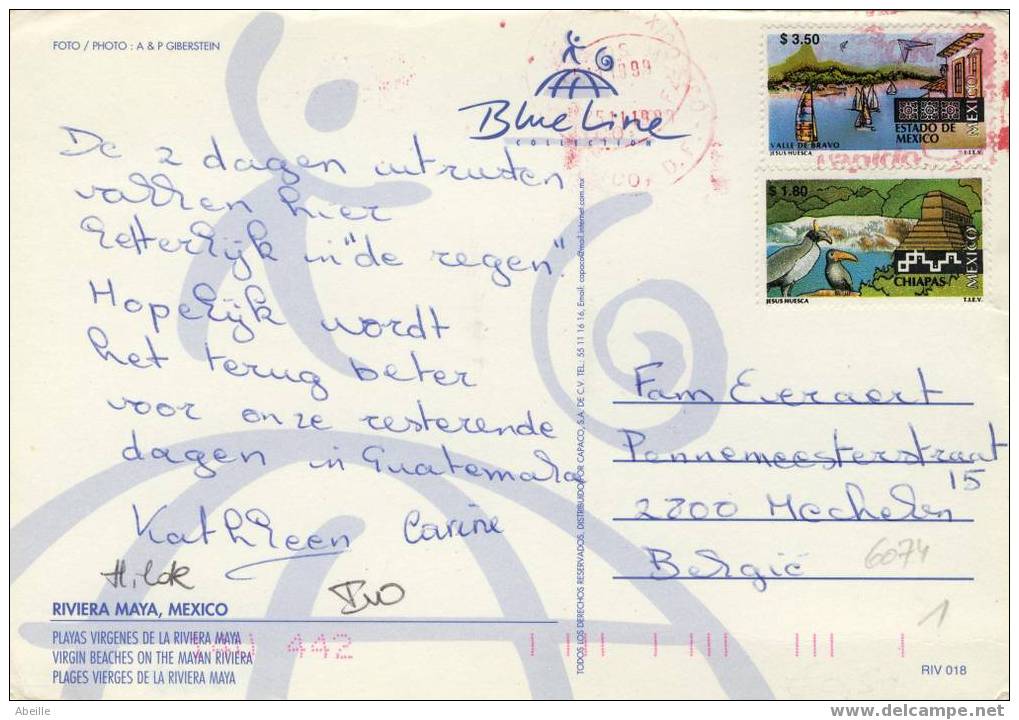 FOTO / PHOTO : A & P GIBERSTEIN
Blue Line
COLLECTION
De 2 dagen uitrusten
vallen hier
letterlijk in "de regen".
Hopelijk wordt
het terug beter
voor onze resterende
dagen in Guatemala
Kathleen Carine
RIVIERA MAYA, MEXICO
PLAYAS VIRGENES DE LA RIVIERA MAYA
VIRGIN BEACHES ON THE MAYAN RIVIERA
PLAGES VIERGES DE LA RIVIERA MAYA
442
TODOS LOS DERECHOS RESERVADOS. DISTRIBUIDO POR CAPACO, S.A. DE C.V. TEL.: 55 11 16 16, Email: capaco@mail.internet.com.mx
$ 3.50
MEXICO
ESTADO DE
MEXICO
VALLE DE BRAVO
JESUS HUESCA T.I.E.V.
$ 1.80
MEXICO
CHIAPAS
JESUS HUESCA T.I.E.V.
Fam Everaert
Pennemeesterstraat
15
2800 Mechelen
België
6074
1
RIV 018
Abeille
www.delcampe.net